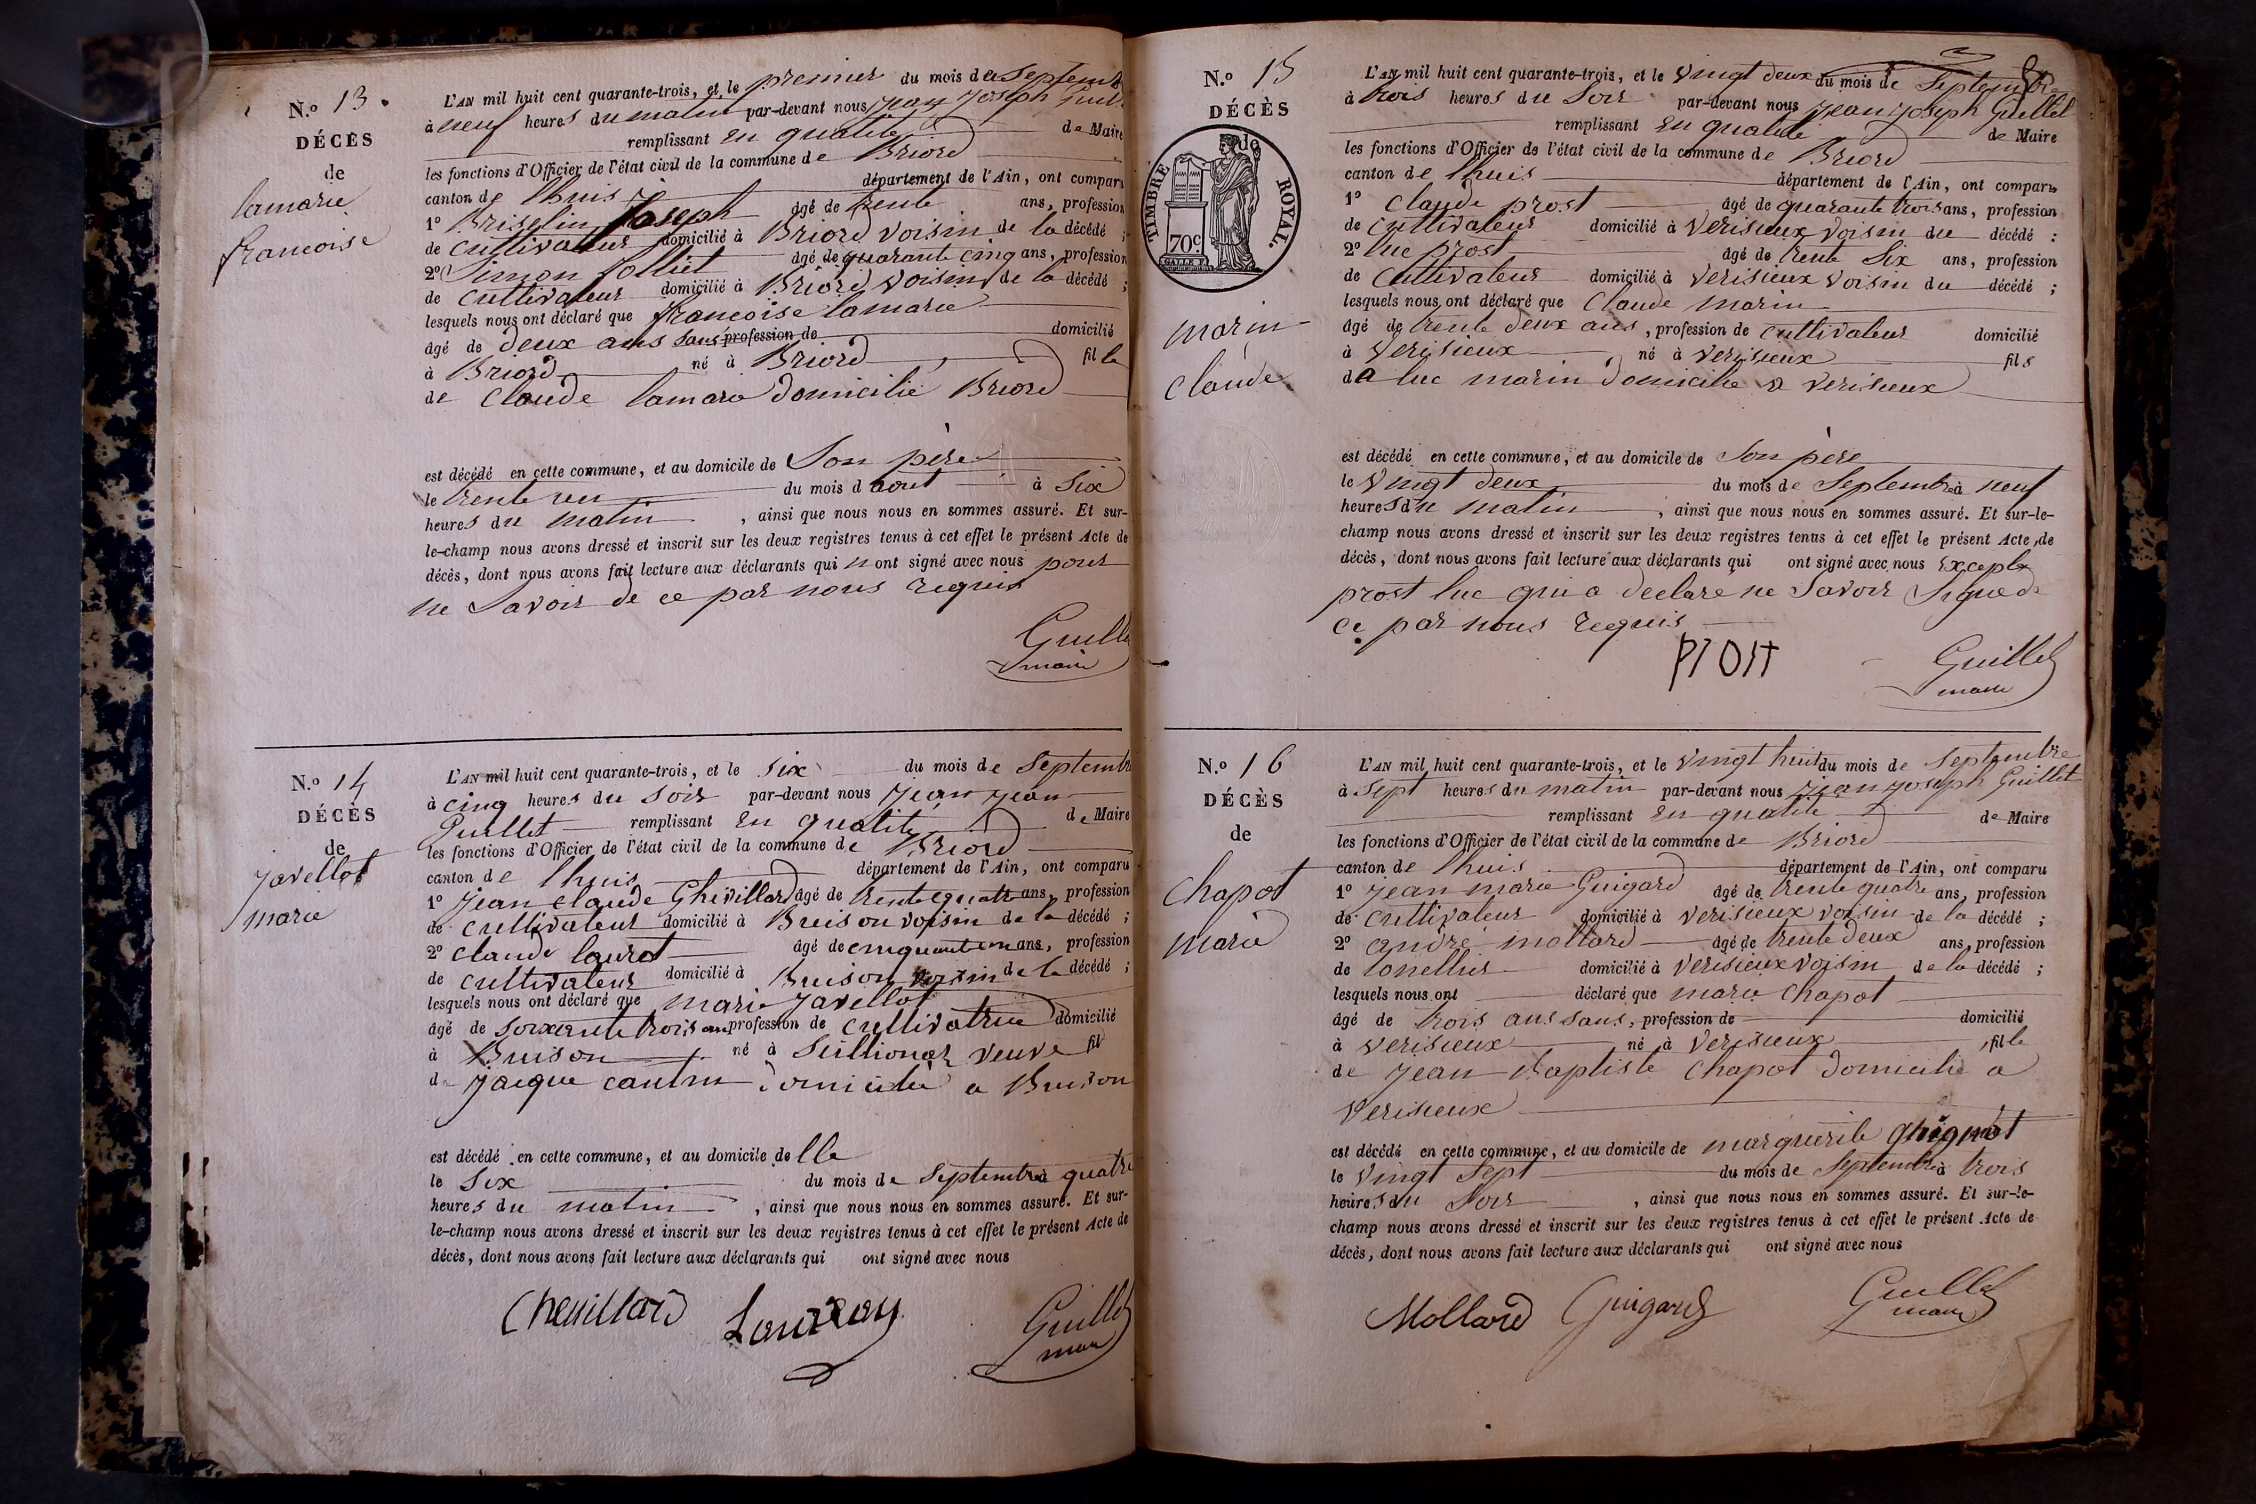 N.o 13.
DÉCÈS
de
lamarie
francoise
L'AN mil huit cent quarante-trois, et le premier du mois de Septemb
à neuf heures du matin par-devant nous jean joseph Guil
remplissant en qualité de Maire
les fonctions d'Officier de l'état civil de la commune de Briord
canton de lhuis département de l'Ain, ont comparu
1o Briselin Joseph âgé de trente ans, profession
de cultivateur domicilié à Briord voisin de la décédé ;
2o Simon Jolliet âgé de quarante cinq ans, profession
de cultivateur domicilié à Briord voisin de la décédé ;
lesquels nous ont déclaré que francoise lamarie
âgé de deux ans sans profession de domicilié
à Briord né à Briord fille
de Claude lamarie domicilié Briord
est décédé en cette commune, et au domicile de Son père
le trente un du mois d aout à Six
heures du matin , ainsi que nous nous en sommes assuré. Et sur-
le-champ nous avons dressé et inscrit sur les deux registres tenus à cet effet le présent Acte de
décès, dont nous avons fait lecture aux déclarants qui n ont signé avec nous pour
ne Savoir de ce par nous requis
Guille
maire
N.o 14
DÉCÈS
de
javellot
marie
L'AN mil huit cent quarante-trois, et le six du mois de Septembr
à cinq heures du Soir par-devant nous jean jean
Guillet remplissant en qualité de Maire
les fonctions d'Officier de l'état civil de la commune de Briord
canton de lhuis département de l'Ain, ont comparu
1o jean claude Chevillard âgé de trente quatre ans, profession
de cultivateur domicilié à Buison voisin de la décédé ;
2o claude lauret âgé de cinquante un ans, profession
de cultivateur domicilié à Buison voisin de la décédé ;
lesquels nous ont déclaré que marie javellot
âgé de soixante trois ans profession de cultivatrice domicilié
à Buison né à Seillionaz veuve fil
de jacque cantin domicilié a Buison
est décédé en cette commune, et au domicile de lle
le Six du mois de Septembre à quatre
heures du matin , ainsi que nous nous en sommes assuré. Et sur-
le-champ nous avons dressé et inscrit sur les deux registres tenus à cet effet le présent Acte de
décès, dont nous avons fait lecture aux déclarants qui ont signé avec nous
Chevillard
Guillet
maire
N.o 15
DÉCÈS
de
TIMBRE ROYAL.
70c
marin
claude
L'AN mil huit cent quarante-trois, et le vingt deux du mois de Septembre
à trois heures du Soir par-devant nous jean joseph Guillet
remplissant en qualité de Maire
les fonctions d'Officier de l'état civil de la commune de Briord
canton de lhuis département de l'Ain, ont comparu
1o Claude prost âgé de quarante trois ans, profession
de cultivateur domicilié à Verisieux voisin du décédé :
2o luc prost âgé de trente Six ans, profession
de Cultivateur domicilié à Verisieux voisin du décédé ;
lesquels nous ont déclaré que Claude marin
âgé de trente deux ans, profession de cultivateur domicilié
à Verisieux né à Verisieux fils
de luc marin domicilié a Verisieux
est décédé en cette commune, et au domicile de Son père
le vingt deux du mois de Septembre à neuf
heures du matin , ainsi que nous nous en sommes assuré. Et sur-le-
champ nous avons dressé et inscrit sur les deux registres tenus à cet effet le présent Acte de
décès, dont nous avons fait lecture aux déclarants qui ont signé avec nous Excepte
prost luc qui a declaré ne Savoir Signe de
ce par nous requis
Prost
Guillet
maire
N.o 16
DÉCÈS
de
Chapot
marie
L'AN mil huit cent quarante-trois, et le vingt huit du mois de Septembre
à Sept heures du matin par-devant nous jean joseph Guillet
remplissant en qualité de Maire
les fonctions d'Officier de l'état civil de la commune de Briord
canton de lhuis département de l'Ain, ont comparu
1o jean marie Guigard âgé de trente quatre ans, profession
de cultivateur domicilié à Verisieux voisin de la décédé ;
2o andré mollard âgé de trente deux ans, profession
de tonellier domicilié à Verisieux voisin de la décédé ;
lesquels nous ont déclaré que marie Chapot
âgé de trois ans sans, profession de domicilié
à Verisieux né à Verisieux , fille
de jean Baptiste Chapot domicilié a
Verisieux
est décédé en cette commune, et au domicile de marguerite ghignot
le vingt Sept du mois de Septembre à trois
heures du Soir , ainsi que nous nous en sommes assuré. Et sur-le-
champ nous avons dressé et inscrit sur les deux registres tenus à cet effet le présent Acte de
décès, dont nous avons fait lecture aux déclarants qui ont signé avec nous
Mollard Guigard
Guillet
maire